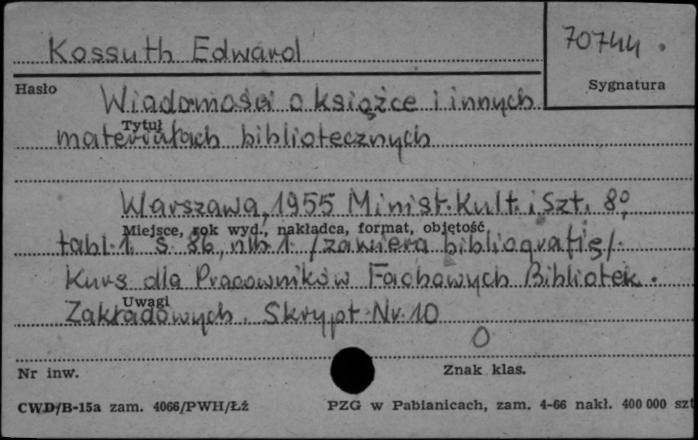 Kossuth Edward
70744.
Hasło
Sygnatura
Wiadomości o książce i innych
Tytuł
materiałach bibliotecznych
Warszawa, 1955 Minist. Kult. i Szt. 8°,
Miejsce, rok wyd., nakładca, format, objętość
tabl. 1. s 86, nlb 1. /zawiera bibliografię/.
Kurs dla Pracowników Fachowych Bibliotek.
Uwagi
Zakładowych. Skrypt Nr. 10
O
Nr inw.
Znak klas.
CWD/B-15a zam. 4066/PWH/Łż
PZG w Pabianicach, zam. 4-66 nakł. 400 000 szt